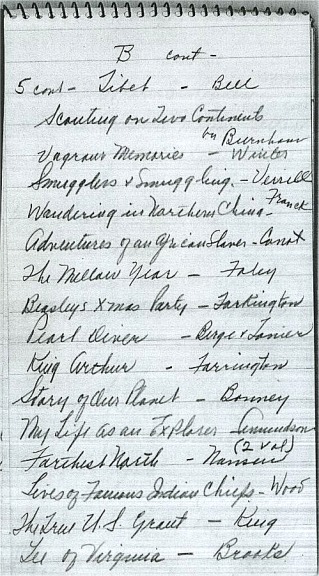 B cont -
5 cont - Tibet - Bell
Scouting on Two Continents
by Burnham
Vagrant Memories - Winter
Smugglers & Smuggling - Verrill
Wandering in Northern China - Franck
Adventures of an African Slaver - Canot
The Mellow Year - Foley
Beasleys Xmas Party - Tarkington
Pearl Diver - Berge & Lanier
King Arthur - Farrington
Story of Our Planet - Bonney
My Life as an Explorer - Amundson
Farthest North - Nansen (2 vol)
Lives of Famous Indian Chiefs - Wood
The True U.S. Grant - King
Lee of Virginia - Brooks